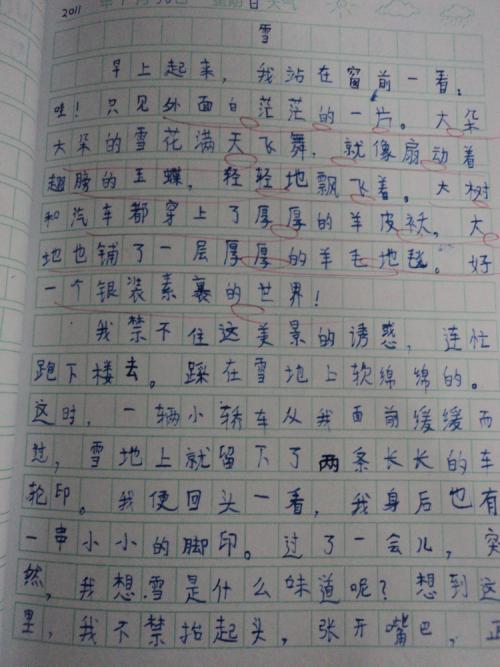 2011 年1月 日 星期日 天气
雪
早上起来，我站在窗前一看，
哇！只见外面白茫茫的一片。大朵
大朵的雪花满天飞舞，就像扇动着
翅膀的玉蝶，轻轻地飘飞着。大树
和汽车都穿上了厚厚的羊皮袄。大
地也铺了一层厚厚的羊毛地毯。好
一个银装素裹的世界！
我禁不住这美景的诱惑，连忙
跑下楼去。踩在雪地上软绵绵的。
这时，一辆小轿车从我面前缓缓而
过，雪地上就留下了两条长长的车
轮印。我便回头一看，我身后也有
一串小小的脚印。过了一会儿，突
然，我想雪是什么味道呢？想到这
里，我不禁抬起头，张开嘴巴，正